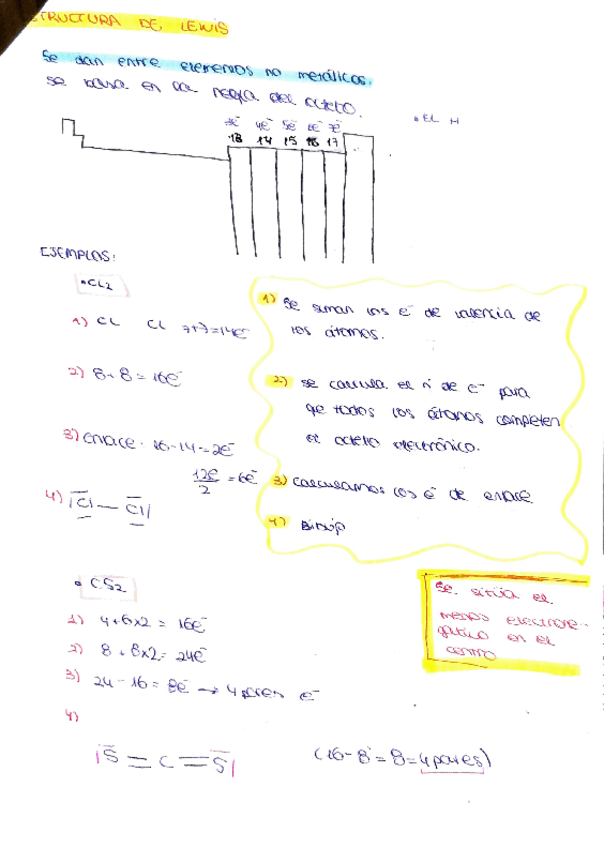 STRUCTURA DE LEWIS
Se dan entre elementos no metálicos.
se basa en la regla del octeto.
• EL H
3e⁻ 4e⁻ 5e⁻ 6e⁻ 7e⁻
13 14 15 16 17
EJEMPLOS:
• CL2
1) CL CL 7+7=14e⁻
2) 8+8=16e⁻
3) Enlace 16-14=2e⁻
12e⁻/2 = 6e⁻
4) |Cl — Cl|
1) Se suman los e⁻ de valencia de
los átomos.
2) se calcula el nº de e⁻ para
qe todos los átomos completen
el octeto electrónico.
3) Calculamos los e⁻ de enlace
4) Dibujo
• CS2
1) 4+6x2 = 16e⁻
2) 8+8x2= 24e⁻
3) 24-16=8e⁻ → 4 pares e⁻
4)
|S = C = S|
(16-8=8=4 pares)
Se sitúa el
menos electrone-
gativo en el
centro